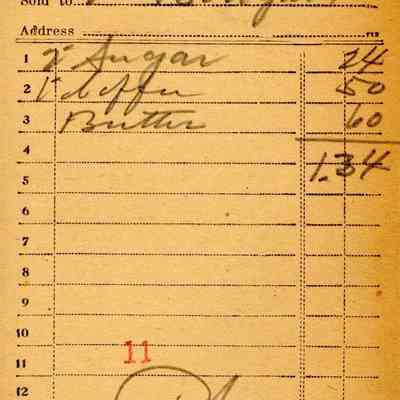 Sold to
Address
1 2 Sugar 24
2 1 Coffee 50
3 Butter 60
4 1.34
5
6
7
8
9
10
11
11
12